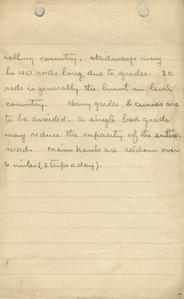 rolling country. Skidways may
be 40 rods long, due to grades. 20
rods is generally the limit in level
country. Heavy grades & curves are
to be avoided. A single bad grade
may reduce the capacity of the entire
road. Main hauls are seldom over
6 miles (2 trips a day).